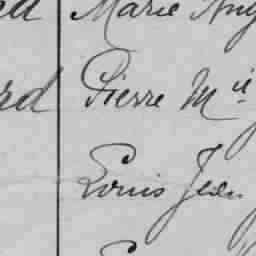 ed Marie Ang
rd Pierre M.ie
Louis Jean